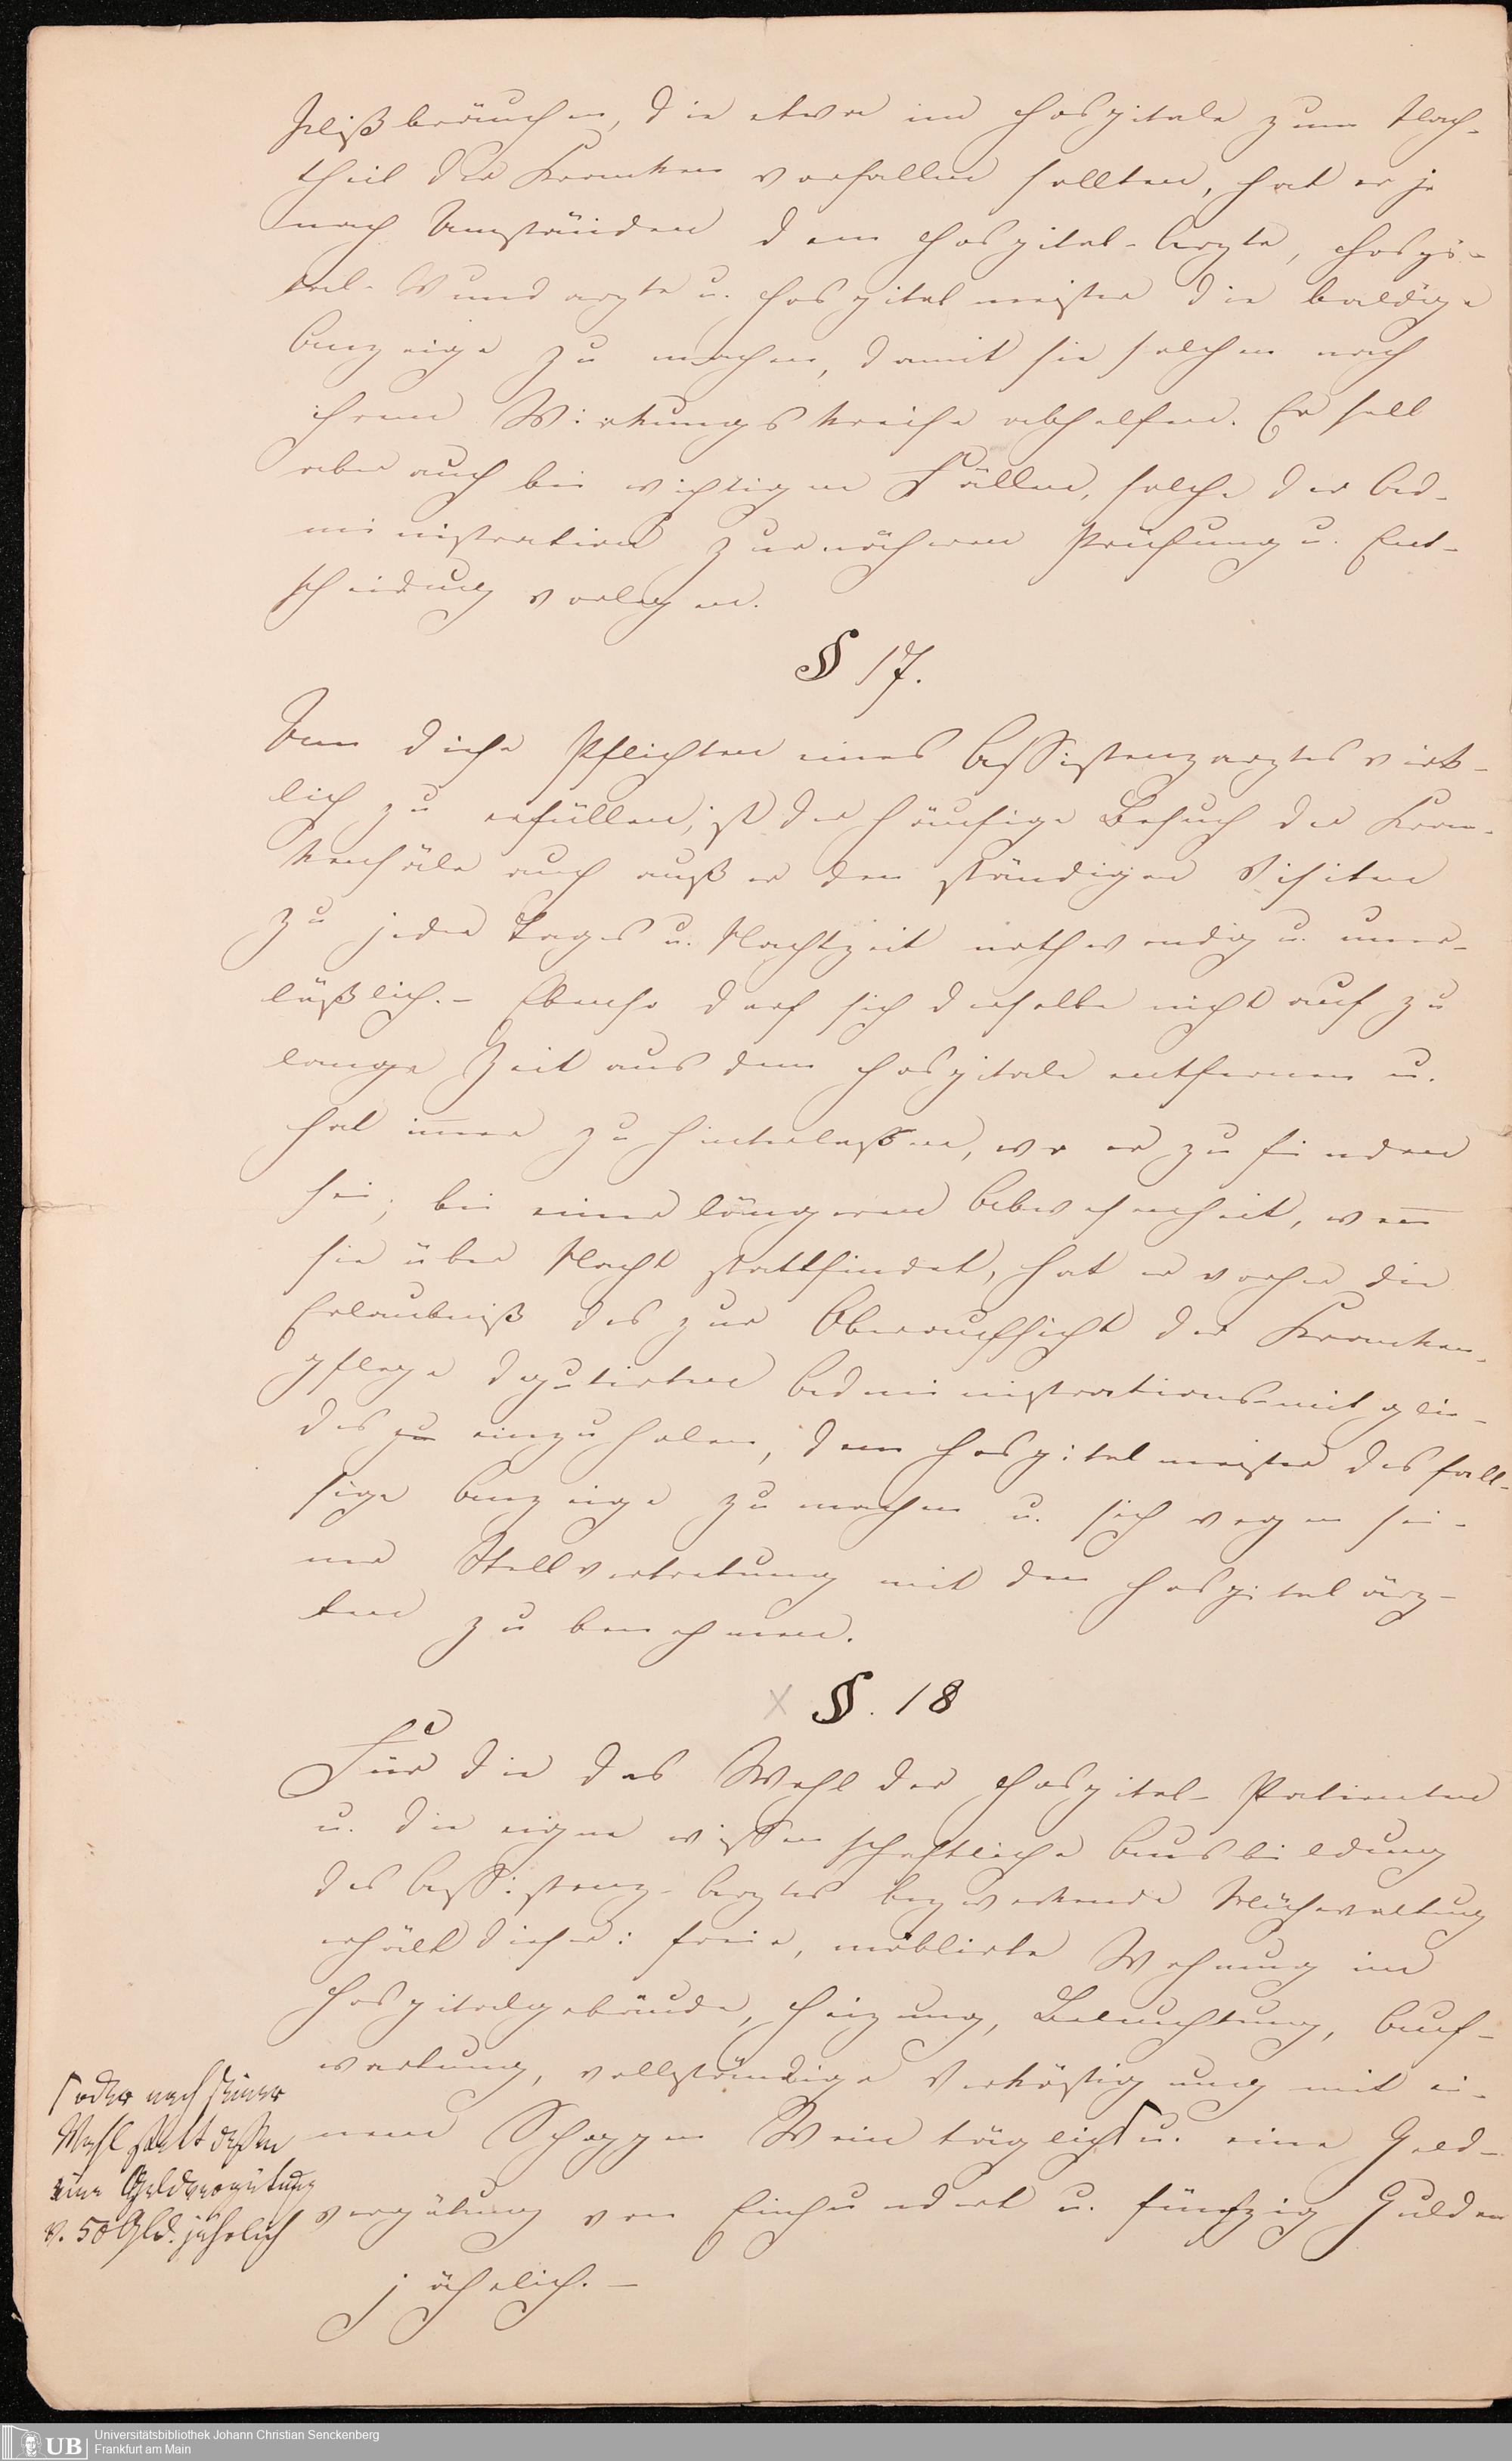 Mißbräuchen, die etwa im Hospitale zum Nach-
theil der Kranken vorfallen sollten, hat er je
nach Umständen dem Hospital-Arzte, Hospi-
tal-Wundarzte u. Hospitalmeister die baldige
Anzeige zu machen, damit sie solchen nach
ihrem Wirkungskreise abhelfen. Er soll
aber auch bei wichtigen Fällen, solche der Ad-
ministration zur näheren Prüfung u. Ent-
scheidung vorlegen.
§ 17.
Um diese Pflichten eines Assistenzarztes wirk-
lich zu erfüllen, ist der häufige Besuch der Kran-
kensäle auch außer den ständigen Visiten
zu jeder Tages u. Nachtzeit nothwendig u. uner-
läßlich. – Ebenso darf sich derselbe nicht auf zu
lange Zeit aus dem Hospitale entfernen u.
hat immer zu hinterlassen, wo er zu finden
sei; bei einer längeren Abwesenheit, wenn
sie über Nacht stattfindet, hat er vorher die
Erlaubniß des zur Oberaufsicht der Kranken-
pflege deputirten Administrationsmitglie-
des zu einzuholen, dem Hospitalmeister desfall-
sige Anzeige zu machen u. sich wegen sei-
ner Stellvertretung mit den Hospitalärz-
ten zu benehmen.
x §. 18
Für die das Wohl der Hospital-Patienten
u. die eigne wissenschaftliche Ausbildung
des Assistenz-Arztes bezweckende Mühewaltung
erhält dieser: freie, möblirte Wohnung im
Hospitalgebäude, Heizung, Beleuchtung, Auf-
wartung, vollständige Verköstigung mit ei-
nem Schoppen Wein täglich ſ u. eine Geld-
vergütung von Einhundert u. fünfzig Gulden
jährlich. –
ſ oder nach seiner
Wahl statt dessen
eine Geldvergütung
v. 50 Gld. jährlich
UB
Universitätsbibliothek Johann Christian Senckenberg
Frankfurt am Main